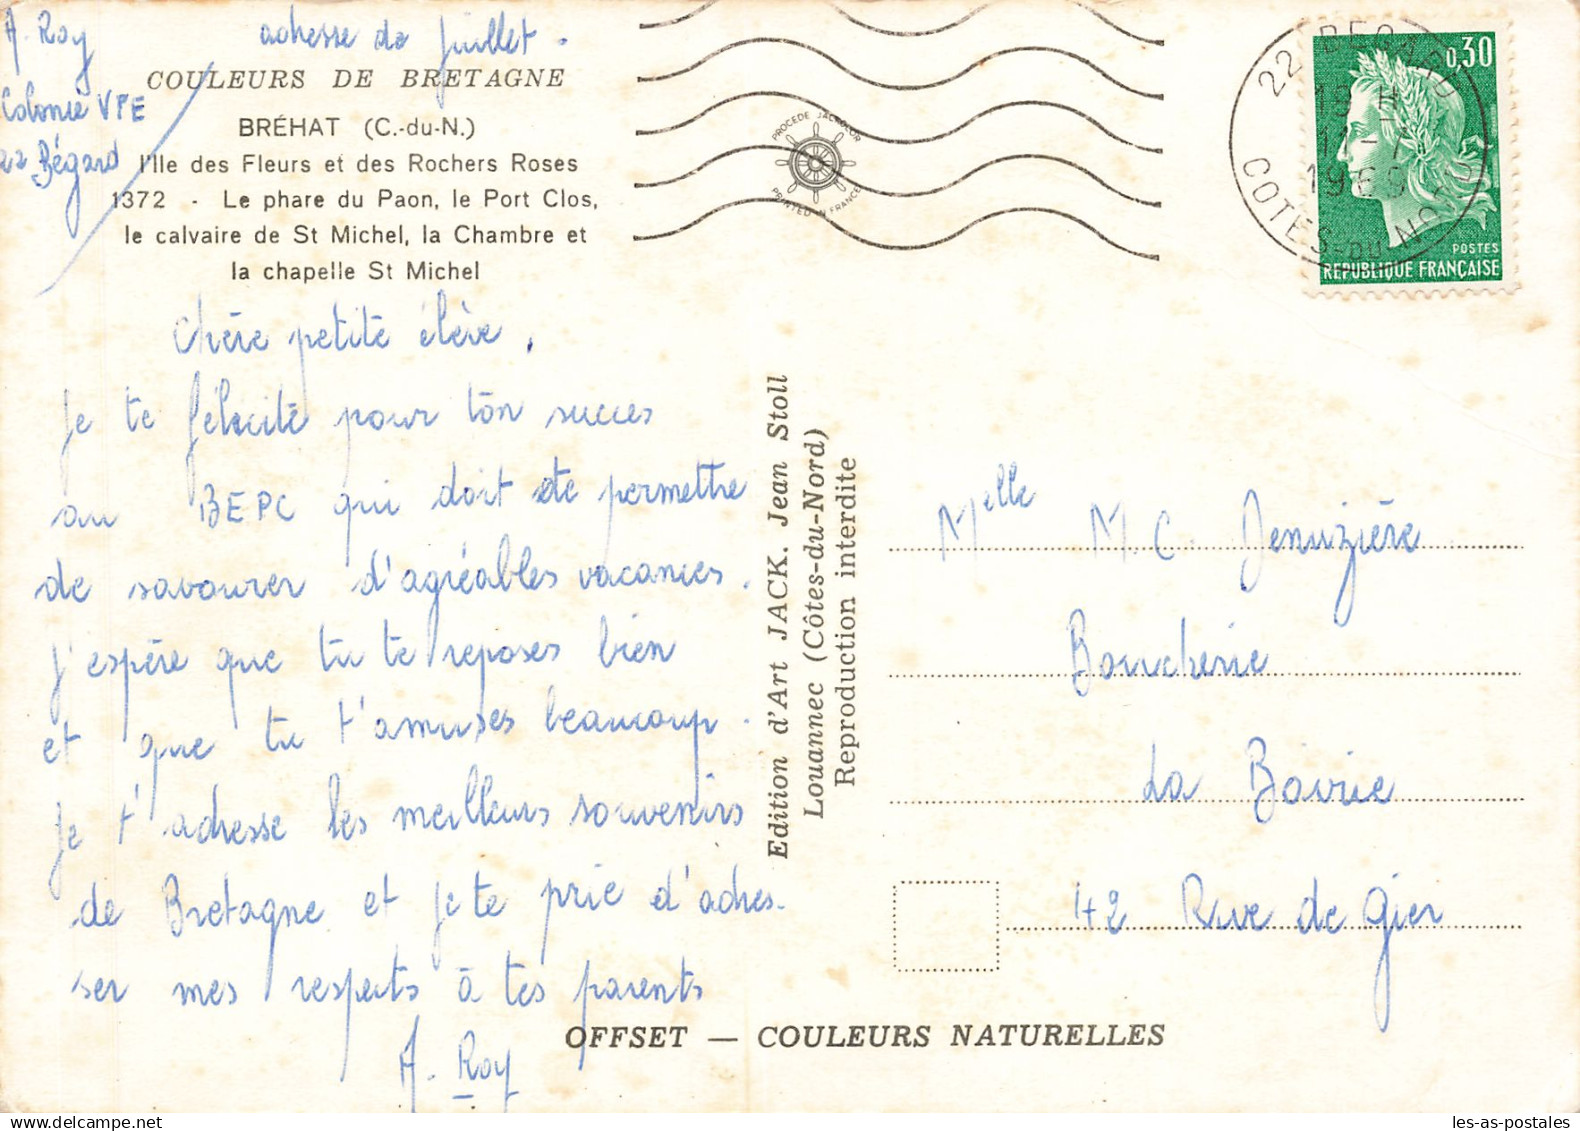 A. Roy
adresse de juillet.
Colonie VPE
22 Bégard
COULEURS DE BRETAGNE
BRÉHAT (C.-du-N.)
l'Ile des Fleurs et des Rochers Roses
1372 - Le phare du Paon, le Port Clos,
le calvaire de St Michel, la Chambre et
la chapelle St Michel
Chère petite élève,
je te félicite pour ton succes
au BEPC qui doit te permettre
de savourer d'agréables vacances.
J'espère que tu te reposes bien
et que tu t'amuses beaucoup.
je t'adresse les meilleurs souvenirs
de Bretagne et je te prie d'adres-
ser mes respects à tes parents
A. Roy
PROCEDE JACKOLOR
PRINTED IN FRANCE
22 BEGARD
18 H
11-7
1969
COTES-DU-NORD
0,30
POSTES
REPUBLIQUE FRANÇAISE
Edition d'Art JACK. Jean Stoll
Louannec (Côtes-du-Nord)
Reproduction interdite
Melle M. C. Jenuzière
Boucherie
La Bovrie
42 Rue de Gier
OFFSET — COULEURS NATURELLES
les-as-postales